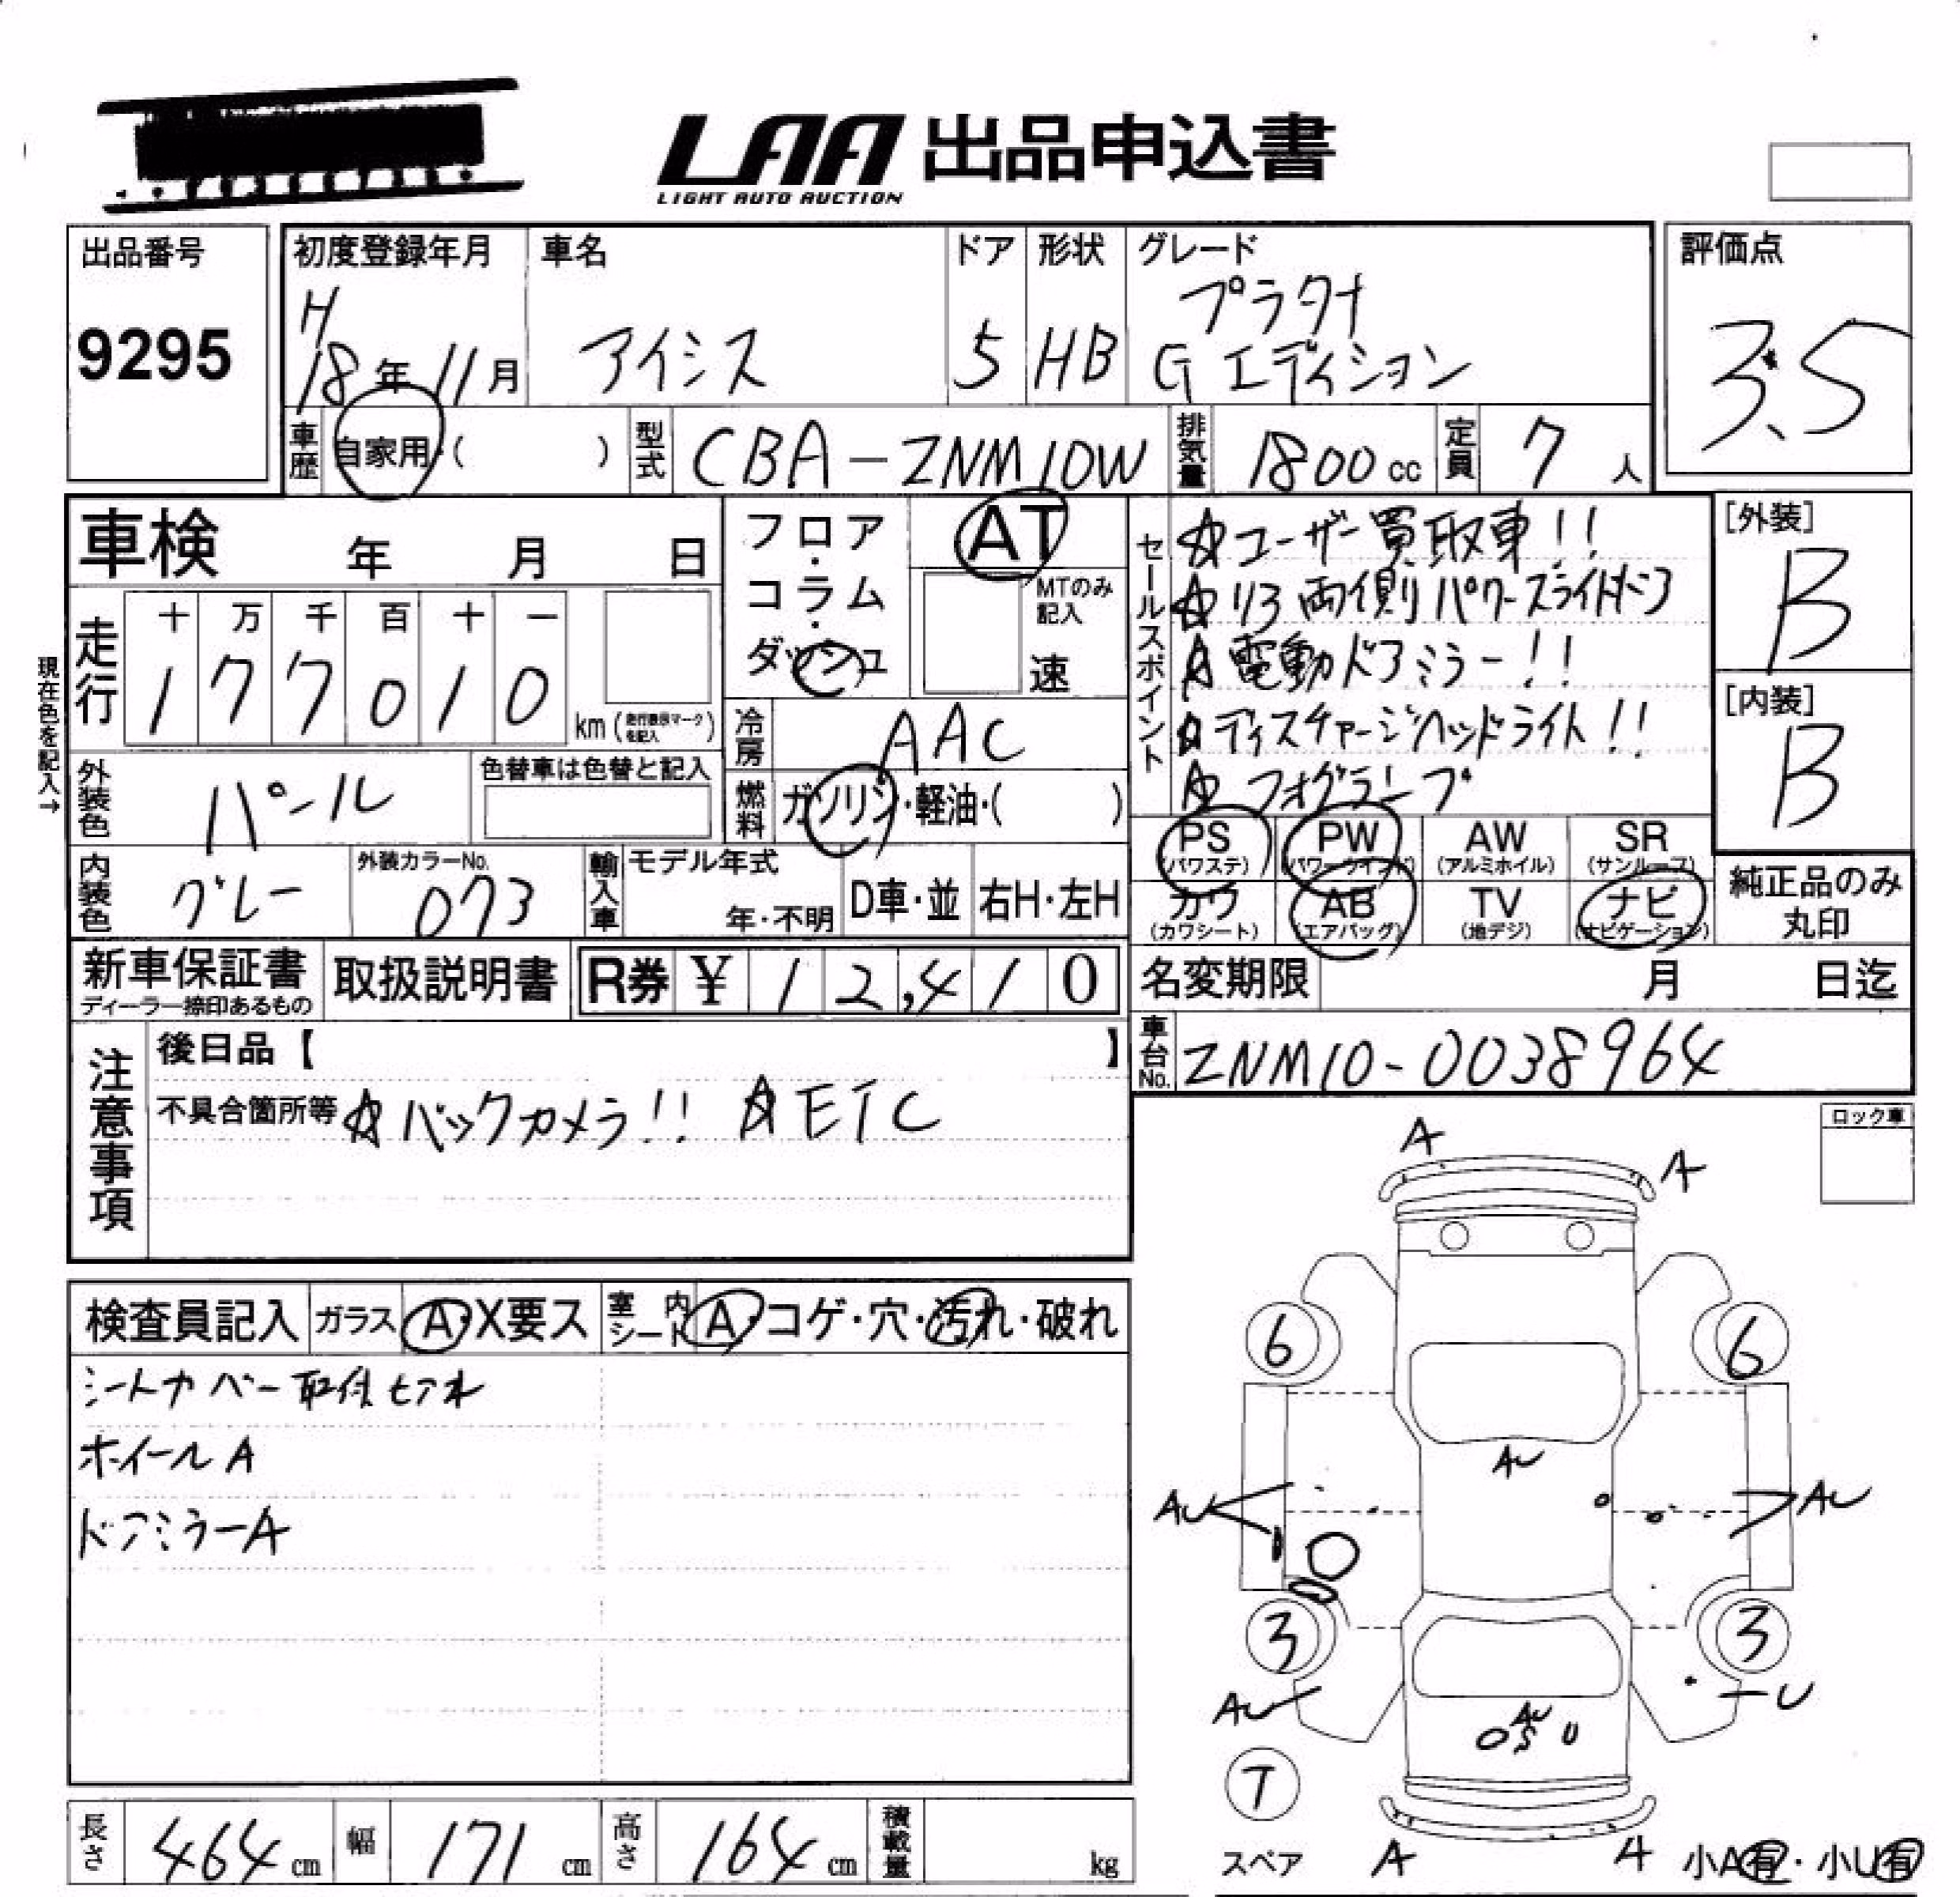 LAA 出品申込書
LIGHT AUTO AUCTION
出品番号
9295
初度登録年月
H
18年11月
車名
アイシス
ドア
5
形状
HB
グレード
プラタナ
Gエディション
評価点
3.5
車歴
自家用・( )
型式
CBA-ZNM10W
排気量
1800cc
定員
7人
車検 年 月 日
フロア・コラム・ダッシュ
AT
MTのみ記入
速
セールスポイント
☆ユーザー買取車!!
☆リヤ両側パワースライドドア
☆電動ドアミラー!!
☆ディスチャージヘッドライト!!
☆フォグランプ
[外装]
B
[内装]
B
現在色を記入→
走行
十 万 千 百 十 一
1 7 7 0 1 0
km (走行表示マークを記入)
冷房
AAC
外装色
パール
色替車は色替と記入
燃料
ガソリン・軽油・( )
PS (パワステ)
PW (パワーウインド)
AW (アルミホイル)
SR (サンルーフ)
内装色
グレー
外装カラーNo.
073
輸入車
モデル年式
年・不明
D車・並
右H・左H
カワ (カワシート)
AB (エアバッグ)
TV (地デジ)
ナビ (ナビゲーション)
純正品のみ丸印
新車保証書
ディーラー捺印あるもの
取扱説明書
R券 ¥ 12,410
名変期限 月 日迄
注意事項
後日品【 】
不具合箇所等 ☆バックカメラ!! ☆ETC
車台No.
ZNM10-0038964
ロック車
A
A
検査員記入
ガラス A・X要ス
室内シート A・コゲ・穴・汚れ・破れ
シートカバー取付
ホイールA
ドアミラーA
6
6
AU
AU
AU
3
3
AU
U
AU
S
U
T
スペア
A
A
小A有・小U有
長さ 464cm
幅 171cm
高さ 164cm
積載量 kg